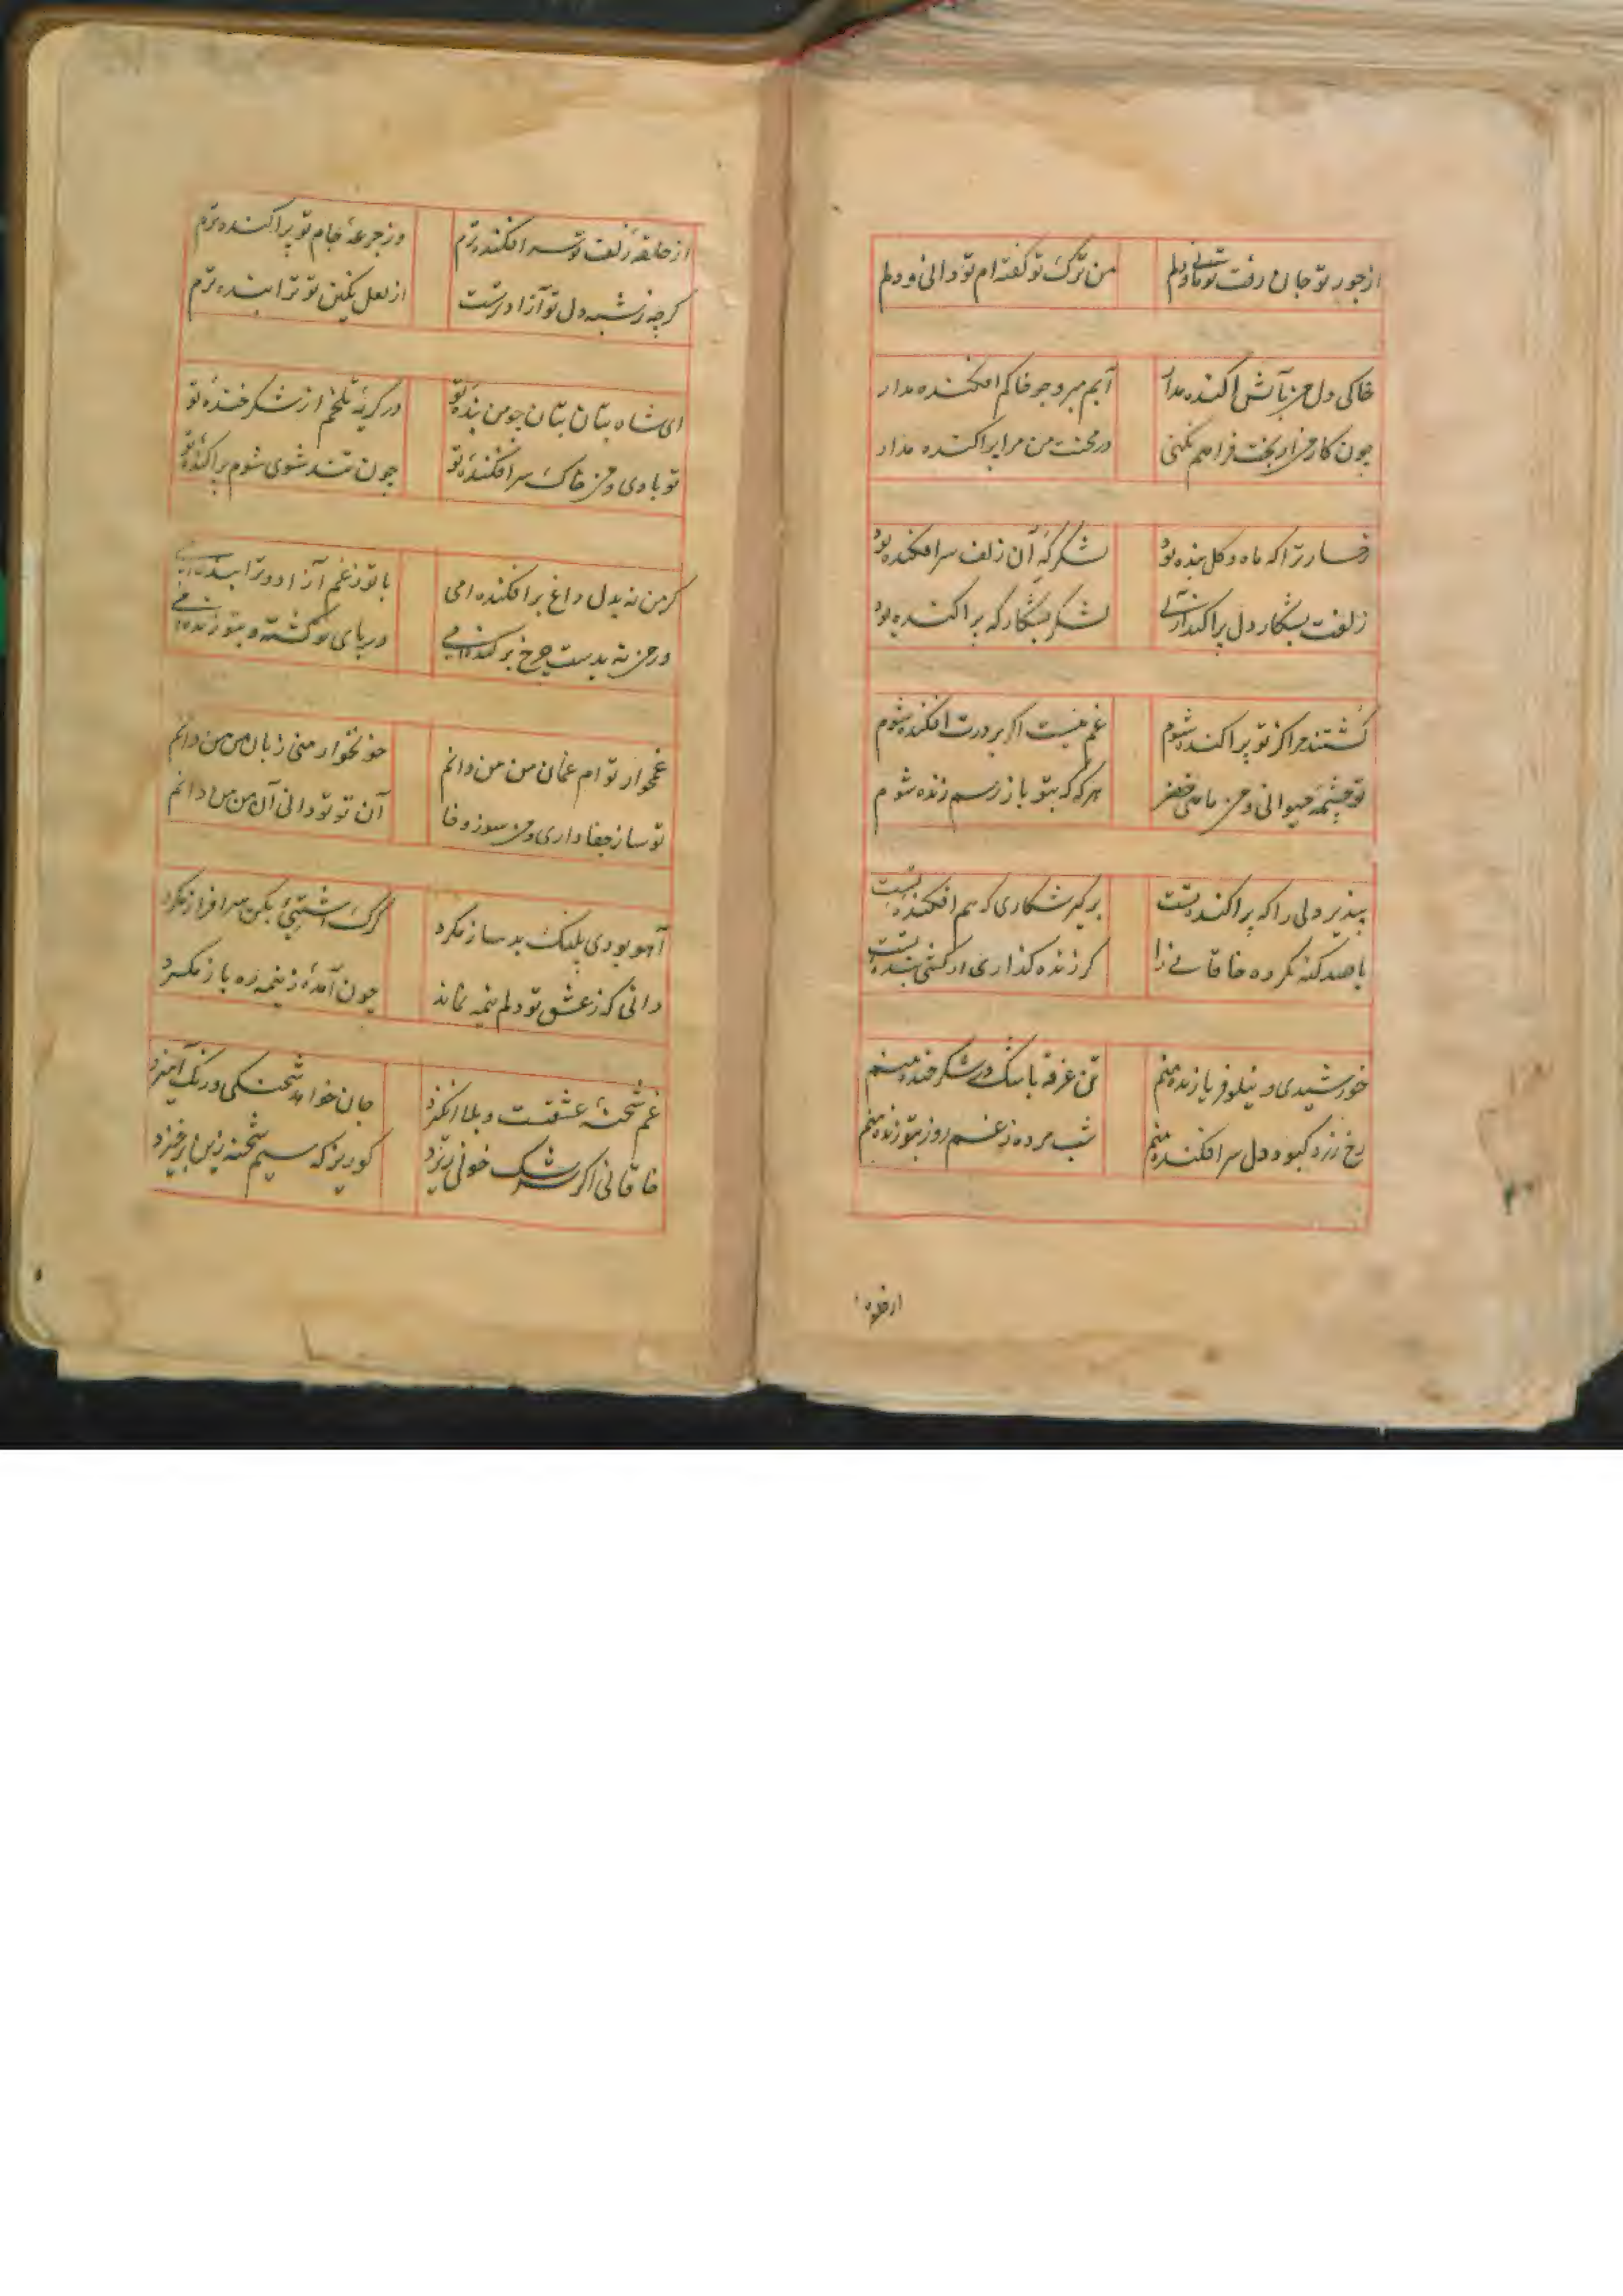 از جور تو جان رفت تو مانی و دلم من ترک تو گفته‌ام تو دانی و دلم
خاکی دل من بآتش آکنده مدار آبم مبر و چو خاکم افکنده مدار
چون کار من از بخت فراهم نکنی در محنت من مرا پراکنده مدار
رخسار ترا که ماه و کل بنده بود لشکرکه آن زلف سرافکنده بود
زلفت بشکار دل پراکند آری لشکر بشکارکه پراکنده بود
کشتند مرا کز تو پراکنده شوم غم نیست اکر بر درت افکنده شوم
تو چشمهٔ حیوانی و من ماهی خضر هر که که بتو باز رسم زنده شوم
بپذیر دلی را که پراکندهٔ تست برکیر شکاری که هم افکندهٔ تست
با صد کنه نکرده خاقانی را کر زنده کذاری ار کشی بندهٔ تست
خورشیدی و نیلوفر یازنده منم تن غرقه باشک در شکر خنده منم
رخ زرد کبود دل سرافکنده منم شب مرده ز غم روز بتو زنده منم
از حلقهٔ
از حلقهٔ زلفت تو سرافکنده ترم وز جرعهٔ جام تو پراکنده ترم
کرچه ز شبه دل تو آزادترست از لعل نکین تو ترا بنده ترم
ای شاه بتان بتان چو من بندهٔ تو در کریهٔ تلخم از شکر خندهٔ تو
تو بادی و من خاک سرافکندهٔ تو چون تند شوی شوم پراکندهٔ تو
کر من نه بدل داغ برافکنده‌امی با تو ز غم آزاد و ترا بنده‌امی
ور من نه بدست چرخ برکنده‌امی در پای تو کشته و بتو زنده‌امی
غمخوار توام غمان من من دانم خونخوار منی زیان من من دانم
تو ساز جفا داری و من سوز وفا آن تو تو دانی آن من من دانم
آهو بودی پلنک بد ساز مکرد کرک آشتیی بکن سرافراز مکرد
دانی که ز عشق تو دلم نیمه نماند چون آمدهٔ ز نیمه ره باز مکرد
غم شحنهٔ عشقست و بلا انکیزد جان خواهد شحنکی و رنک آمیزد
خاقانی اکر سرشک خونی ریزد کو ریز که سیم شحنه زین برخیزد